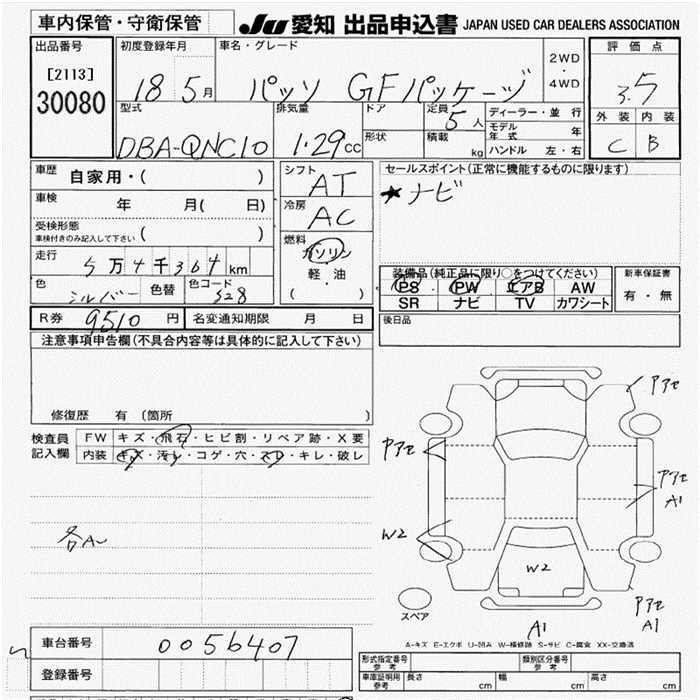 車内保管・守衛保管
JU 愛知 出品申込書 JAPAN USED CAR DEALERS ASSOCIATION
出品番号 初度登録年月 車名・グレード 2WD ・ 4WD 評価点
[2113]
30080
18 5月 パッソ GFパッケージ 3.5
型式 排気量 ドア 定員 5人 ディーラー・並行 外装 内装
DBA-QNC10 1.29cc 形状 積載 kg モデル年式 年 C B
ハンドル 左・右
車歴 自家用・( )
シフト AT
セールスポイント(正常に機能するものに限ります)
★ナビ
車検 年 月( 日)
冷房 AC
受検形態
車検付きのみ記入して下さい ( )
燃料 ガソリン
軽・油
( )
走行 5万4千364km
色 シルバー 色替 色コード S28
装備品(純正品に限り○をつけてください) 新車保証書
PS PW エアB AW 有・無
SR ナビ TV カワシート
R券 9510円 名変通知期限 月 日
後日品
注意事項申告欄(不具合内容等は具体的に記入して下さい)
修復歴 有 〔箇所 〕
検査員 FW キズ・飛石・ヒビ割・リペア跡・X要
記入欄 内装 キズ・汚レ・コゲ・穴・スレ・キレ・破レ
各A〜
Pアセ
Pアセ
Pアセ
A1
W2
W2
Pアセ
A1
A1
スペア
A-キズ E-エクボ U-凹み W-補修跡 S-サビ C-腐食 XX-交換済
車台番号 0056407
登録番号
形式指定番号 参考 類別区分番号 参考
車庫証明用 参考 長さ cm 幅 cm 高さ cm